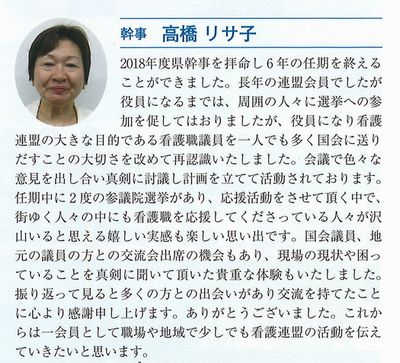 幹事 高橋 リサ子
2018年度県幹事を拝命し6年の任期を終える
ことができました。長年の連盟会員でしたが
役員になるまでは、周囲の人々に選挙への参
加を促してはおりましたが、役員になり看護
連盟の大きな目的である看護職議員を一人でも多く国会に送り
だすことの大切さを改めて再認識いたしました。会議で色々な
意見を出し合い真剣に討議し計画を立てて活動されております。
任期中に2度の参議院選挙があり、応援活動をさせて頂く中で、
街ゆく人々の中にも看護職を応援してくださっている人が沢
山いると思える嬉しい実感も楽しい思い出です。国会議員、地
元の議員の方との交流会出席の機会もあり、現場の現状や困っ
ていることを真剣に聞いて頂いた貴重な体験もいたしました。
振り返って見ると多くの方との出会いがあり交流を持てたこと
に心より感謝申し上げます。ありがとうございました。これか
らは一会員として職場や地域で少しでも看護連盟の活動を伝え
ていきたいと思います。